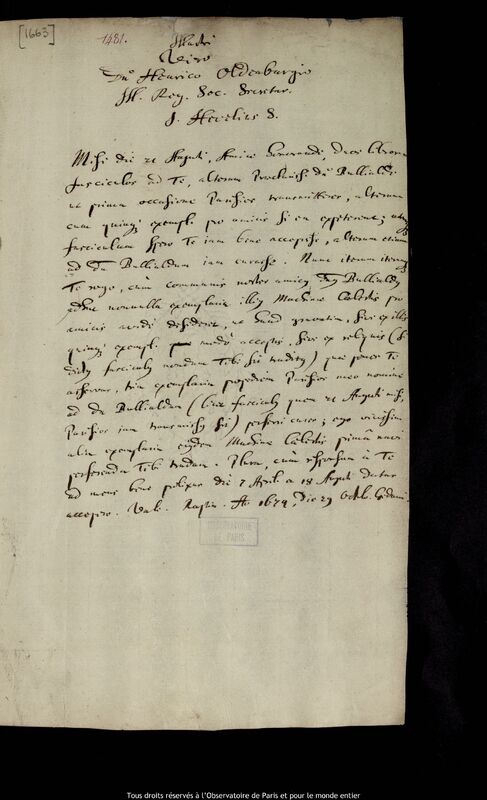 [1663]
1481.
Illustri
Viro
Dno Henrico Oldenburgio
Ill. Reg. Soc. Secretar.
J. Hevelius S.
Misi die 21 Augusti, Amice honorande, duos librorum
fasciculos ad Te, alterum Bullialdo
ut prima occasione Parisios transmitteres, alterum
cum quinque exempl. pro amicis si ea expeterent;
fasciculum spero Te iam bene accepisse, alterum etiam
ad Dn Bullialdum iam curasse. Nunc iterum iterumque
Te rogo, cum communis noster amicus, Dnus Bullialdus
adhuc nonnulla exemplaria illius Machinae Caelestis pro
amicis avide desideret, ut haud gravatim, sive ex illis
quinque exempl. modo acceptis, sive ex reliquis (si
dictus fasciculus nondum Tibi sit traditus) quae penes Te
tria exemplaria Parisios meo nomine
ad Dn Bullialdum (fasciculus quem 21 Augusti misi,
Parisios iam transmissus sit) perferri cures; ego vicissim
alia exemplaria eiusdem Machinae Caelestis prima navi
perferenda Tibi tradam. Plura, cum responsum a Te
ad meas bene prolixas die 7 Aprilis a 19 Augusti datas
accepero. Vale. Raptim. Ao 1674, die 29 Octob. Gedani.
OBSERVATOIRE
DE PARIS
Tous droits réservés à l'Observatoire de Paris et pour le monde entier